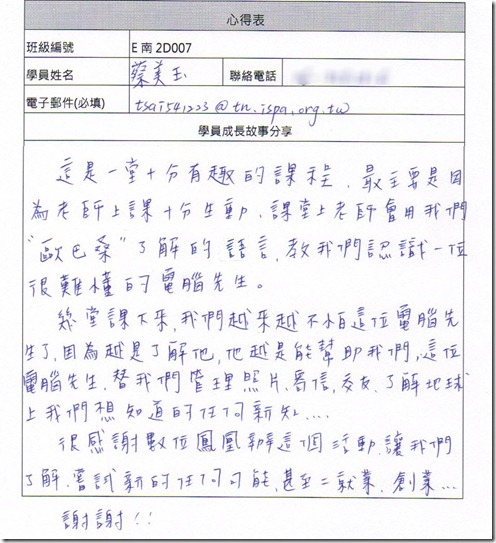 心得表
班級編號 E 南 2D007
學員姓名 蔡美玉 聯絡電話
電子郵件(必填) tsai541223@tn.ispa.org.tw
學員成長故事分享
這是一堂十分有趣的課程，最主要是因
為老師上課十分生動，課堂上老師會用我們
"歐巴桑"了解的語言，教我們認識一位
很難懂的電腦先生。
幾堂課下來，我們越來越不怕這位電腦先
生了，因為越是了解他，他越是能幫助我們，這位
電腦先生，替我們管理照片、寄信，交友、了解地球
上我們想知道的任何新知....
很感謝數位鳳凰辦這個活動，讓我們
了解，嘗試新的任何可能，甚至二就業、創業...
謝謝!!